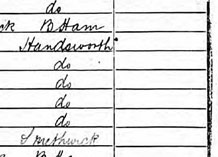 do
B Ham
Handsworth
do
do
do
do
Smethwick
B Ham